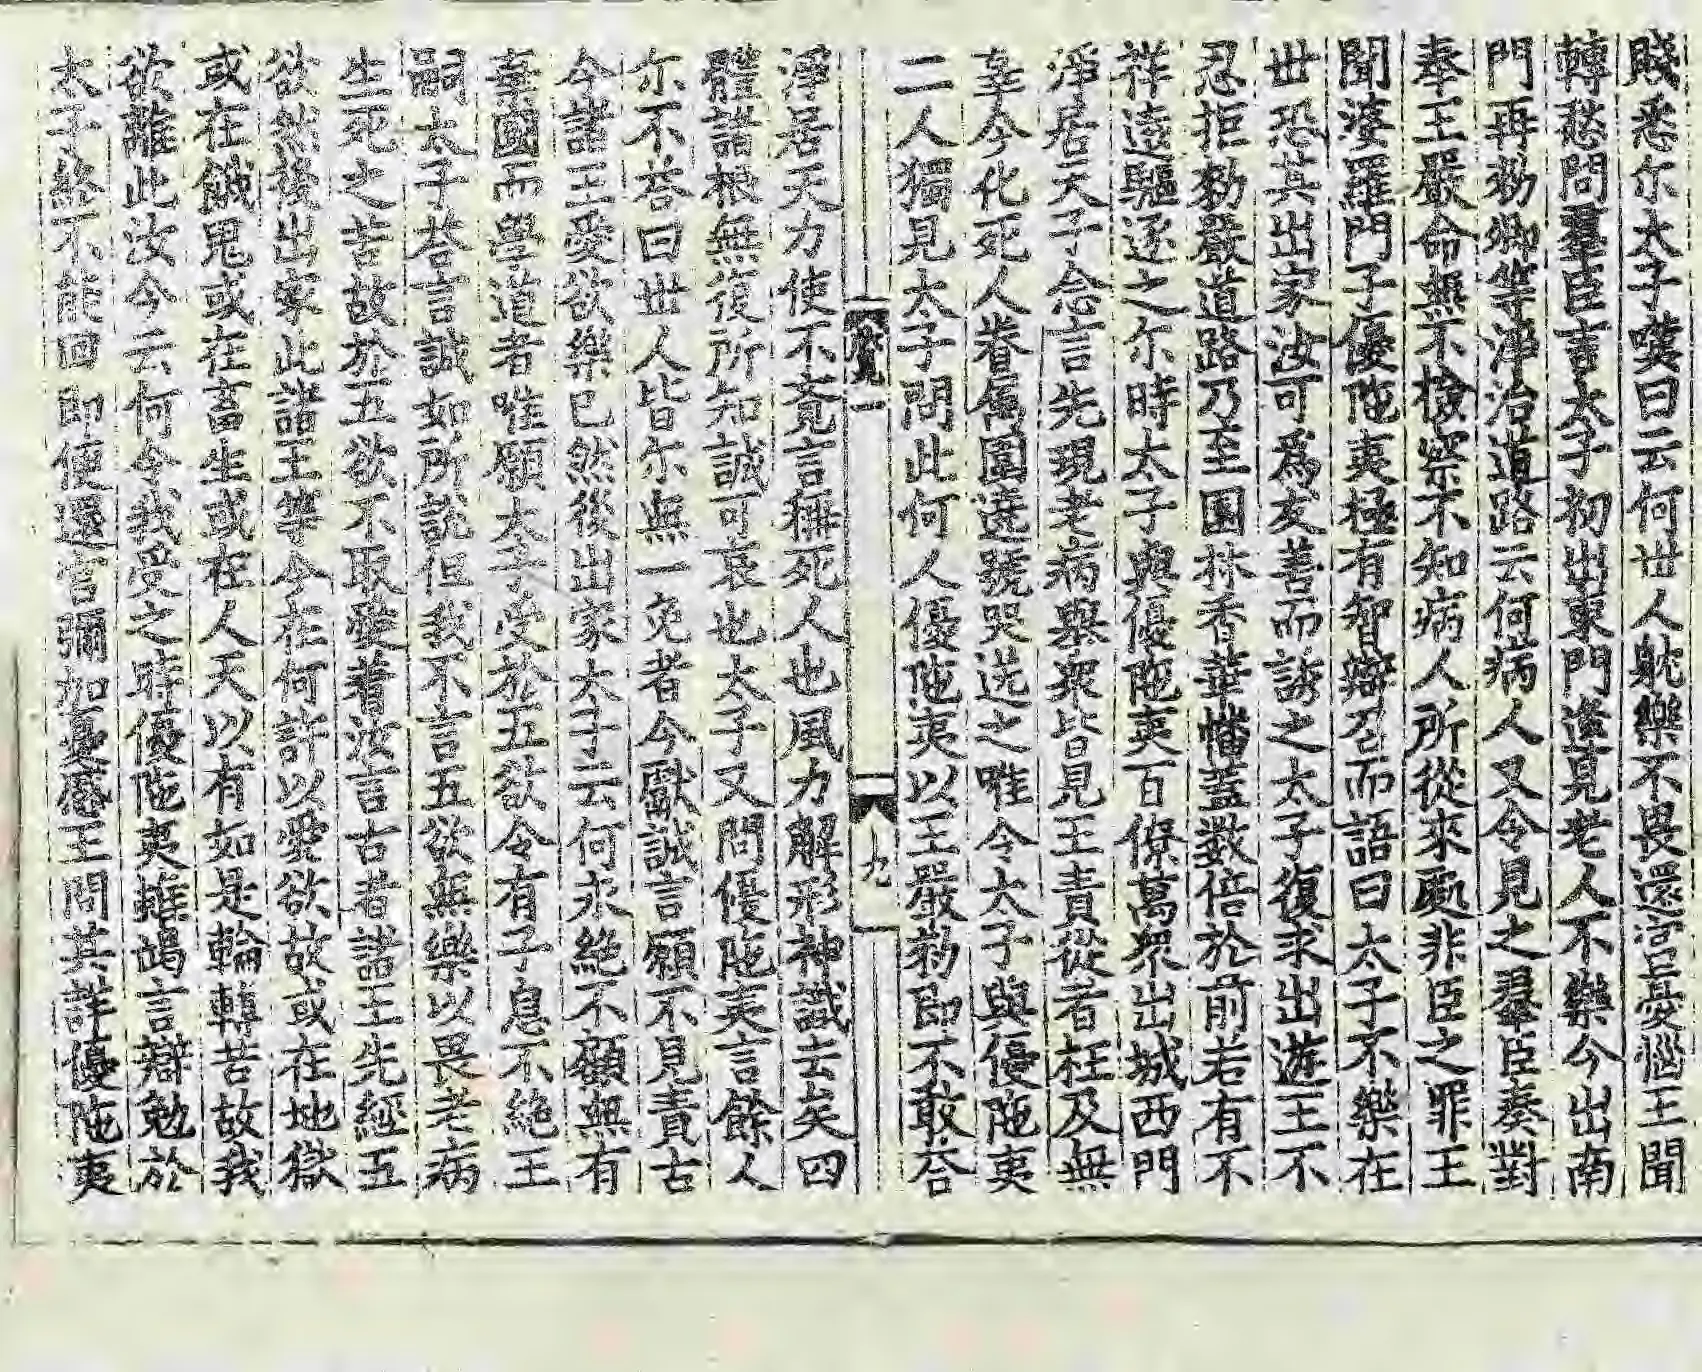 賤悉尔太子嘆曰云何世人躭樂不畏還宮憂惱王聞
轉愁問羣臣言太子初出東門逢見老人不樂今出南
門再勑卿等淨治道路云何病人又令見之羣臣奏對
奉王嚴命無不檢察不知病人所從來處非臣之罪王
聞婆羅門子優陁夷極有智辯召而語曰太子不樂在
世恐其出家汝可爲友善而誘之太子復求出遊王不
忍拒勑嚴道路乃至園林香華幡蓋數倍於前若有不
祥遠驅逐之尔時太子與優陁夷百僚萬衆出城西門
淨居天子念言先現老病與衆皆見王責從者枉及無
辜今化死人眷属圍遶號哭送之唯令太子與優陁夷
二人獨見太子問此何人優陁夷以王嚴勑即不敢荅
九
淨居天力使不覺言稱死人也風力解形神識去矣四
體諸根無復所知誠可哀也太子又問優陁夷言餘人
亦不荅曰世人皆尔無一免者今獻誠言願不見責古
今諸王愛欲樂已然後出家太子云何永絶不顧無有
棄國而學道者唯願太子受於五欲令有子息不絶王
嗣太子荅言誠如所說但我不言五欲無樂以畏老病
生死之苦故於五欲不取愛着汝言古昔諸王先經五
欲然後出家此諸王等今在何許以愛欲故或在地獄
或在餓鬼或在畜生或在人天以有如是輪轉苦故我
欲離此汝今云何令我受之時優陁夷雖竭言辯勉於
太子終不能回即便還宮彌加憂慼王問其詳優陁夷